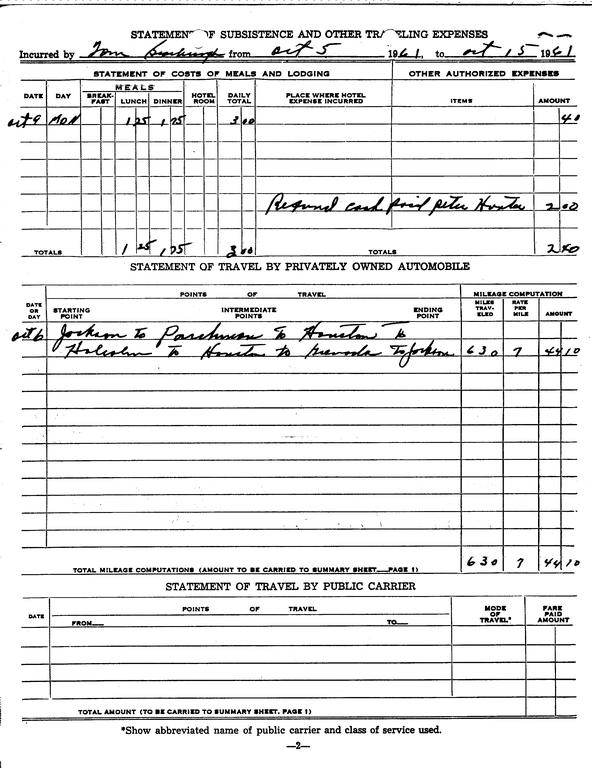 STATEMENT OF SUBSISTENCE AND OTHER TRAVELING EXPENSES
Incurred by Tom from Oct 5 1961, to Oct 15 1961
STATEMENT OF COSTS OF MEALS AND LODGING OTHER AUTHORIZED EXPENSES
DATE DAY MEALS BREAK-FAST LUNCH DINNER HOTEL ROOM DAILY TOTAL PLACE WHERE HOTEL EXPENSE INCURRED ITEMS AMOUNT
Oct 9 MON 1 25 1 75 3 00 40
Refund cash paid Peter Hunter 2 00
TOTALS 1 25 1 75 3 00 TOTALS 2 40
STATEMENT OF TRAVEL BY PRIVATELY OWNED AUTOMOBILE
DATE OR DAY POINTS OF TRAVEL MILEAGE COMPUTATION
STARTING POINT INTERMEDIATE POINTS ENDING POINT MILES TRAV-ELED RATE PER MILE AMOUNT
Oct 6 Jackson to Parchman to Houston to
Holcolm to Houston to to Jackson 630 7 44 10
TOTAL MILEAGE COMPUTATIONS (AMOUNT TO BE CARRIED TO SUMMARY SHEET PAGE 1) 630 7 44 10
STATEMENT OF TRAVEL BY PUBLIC CARRIER
DATE POINTS OF TRAVEL MODE OF TRAVEL* FARE PAID AMOUNT
FROM TO
TOTAL AMOUNT (TO BE CARRIED TO SUMMARY SHEET. PAGE 1)
*Show abbreviated name of public carrier and class of service used.
—2—